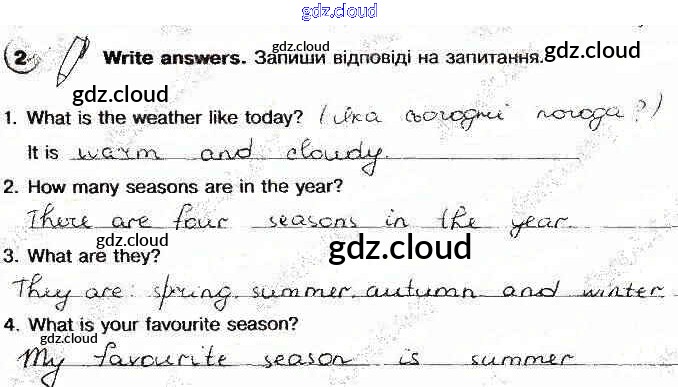 gdz.cloud
2 Write answers. Запиши відповіді на запитання.
gdz.cloud
gdz.cloud
gdz.cloud
1. What is the weather like today? (Яка сьогодні погода?)
It is warm and cloudy.
2. How many seasons are in the year?
There are four seasons in the year.
gdz.cloud
gdz.cloud
3. What are they?
They are: spring, summer, autumn and winter.
4. What is your favourite season?
gdz.cloud
My favourite season is summer